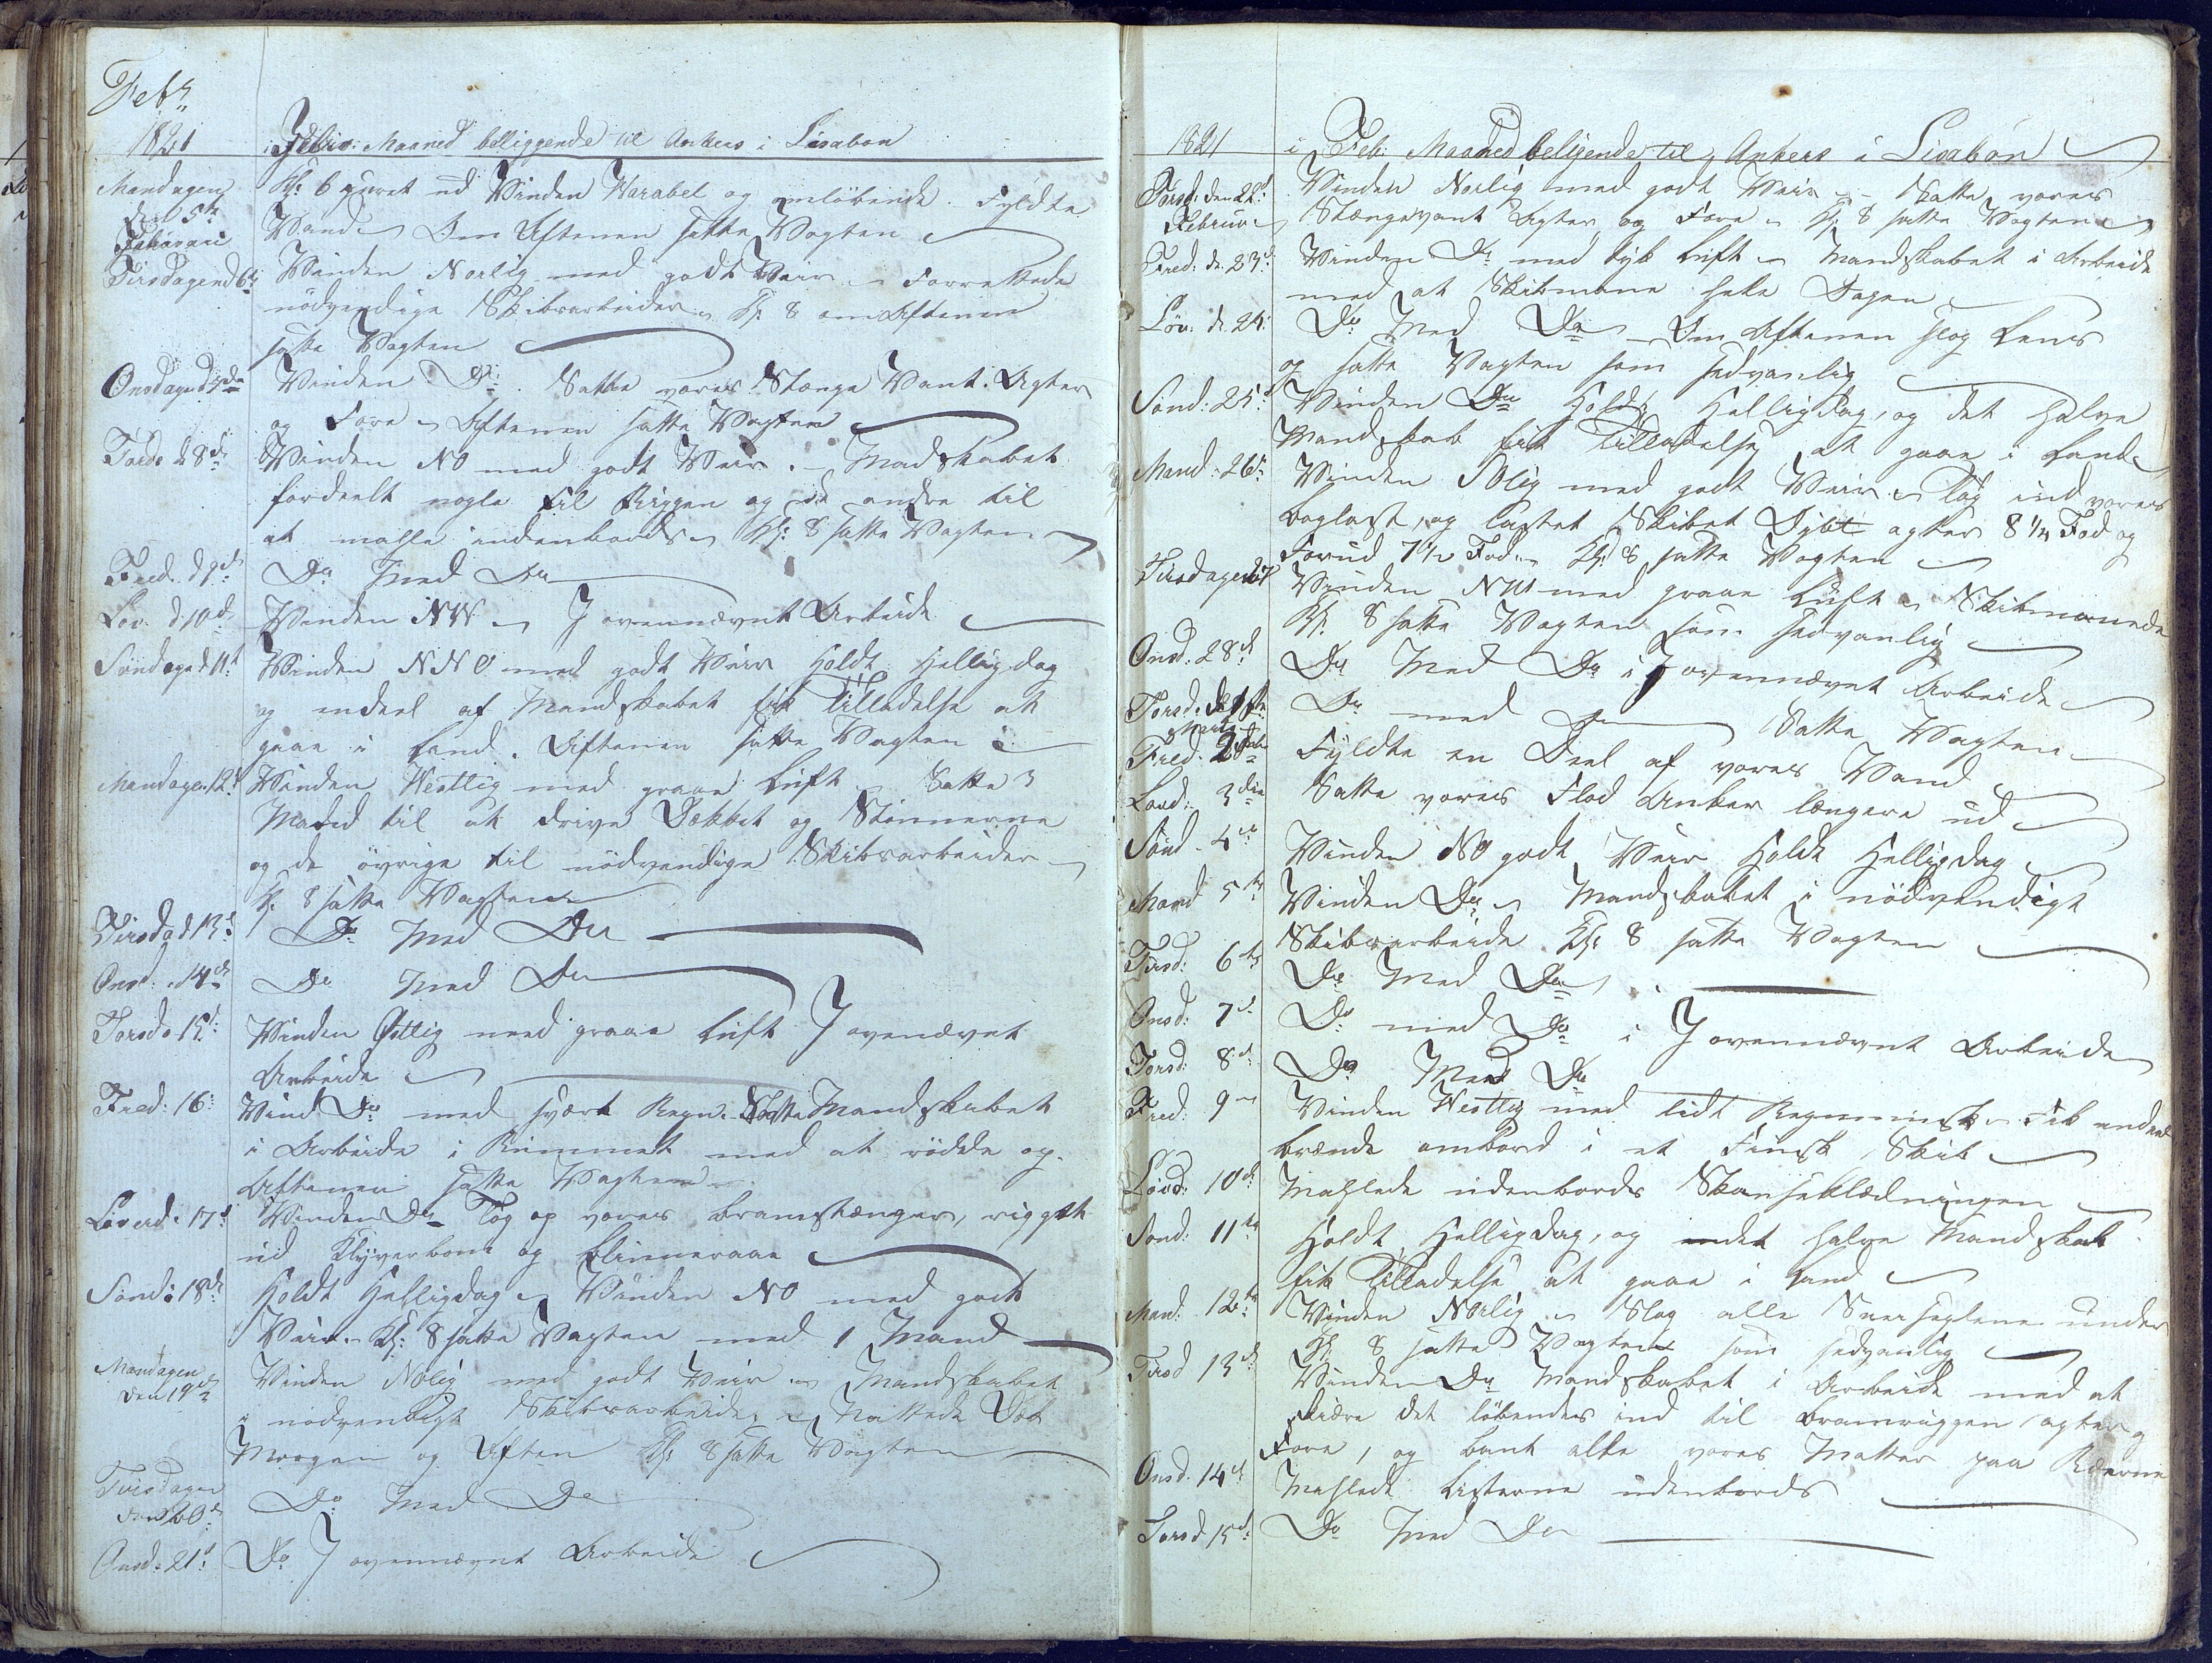 Febr
1821 i Febru: Maaned belliggende til Ankers i Lisabon
Mandagen Kl: 6 purret ud Vinden Warabel og omløbende. Fyldte
den 5te Februari Vand Om Aftenen satte Vagten
Tirsdagen d 6te Vinden Norlig med godt Veir Forrettede
nödvendige Skibsarbeider Kl: 8 om Aftenen
satte Vagten
Onsdagen d 7de Vinden Do. Satte vores Stænge Vant. Agter
og Fore Aftenen satte Vagten
Torsd: d 8de Vinden NO med godt Veir. Madskabet
fordeelt nogle til Riggen og de andre til
at mahle indenbords Kl: 8 satte Vagten
Fred. d 9de Do med Do
Löv. d 10de Vinden NW I ovennævnt Arbeide
Söndagen d 11te Vinden NNO med godt Veir Holdt Hellig dag
og endeel af Mandskabet fik Tilladelse at
gaae i Land. Aftenen satte Vagten
Mandagen 12te Vinden Westlig med graae Luft Satte 3
Mand til at drive Dækket og
og de övrige til nödvendige Skibsarbeider
Kl. 8 satte Vagten
Tirsdag d 13de Do Med Do
Onsd. 14de Do Med Do
Torsd. 15de Vinden Ostlig med graae Luft I ovenævnt
Arbeide
Fred: 16: Vind Do med svært Regn. Satte Mandskabet
i Arbeide i Rummet med at rödde op.
Aftenen satte Vagten
Löverd. 17de Vinden Do Tog op vores Bramstænger, rigget
ud Klyverbom og Blinderaae
Sönd: 18de Holdt Helligdag Vinden NO med godt
Veir. Kl: 8 satte Vagten med 1 Mand
Mandagen Vinden Nolig med godt Veir Mandskabet
den 19de i nödvendigt Skibsarbeide,
Morgen og Aften Kl 8 satte Vagten
Tirsdagen
den 20de Do Med Do
Onsd: 21de Do I ovennævnt Arbeide
1821 i Feb: Maaned beligende til Ankers i Lisabon
Torsd: den 22de Vinden Norlig med godt Veir Satte vores
Februar Stængevant Agter og Fore Kl: 8 satte Vagten
Fred: d. 23de Vinden Do med tyk Luft Mandskabet i Arbeide
med at Skibmane hele Dagen
Löv. d. 24: Do Med Do Om Aftenen slog Lens
og satte Vagten som sedvanlig
Sönd: 25de Vinden Do Holdt Helligdag, og det halve
Mandskab fik Tilladelse at gaae i Land
Mand. 26de Vinden Nolig med godt Veir Tog ind vores
Baglast, og lastet Skibet Dybt agter 8 1/4 Fod og
Forud 7 1/2 Fod. Kl: 8 satte Vagten
Tirsdagen 27 Vinden NW med graae Luft Skibmanede
Kl. 8 satte Vagten som sedvanlig
Onsd. 28de Do Med Do i I ovennævnt Arbeide
Torsd. d. 1ste Marts Do med Do Satte Vagten
Fred. 2den Fyldte en Deel af vores Vand
Lörd. 3die Satte vores Flod Anker længere ud
Sönd. 4de Vinden NO godt Veir Holdt Helligdag
Mand 5te Vinden Do Mandskabet i nödvendigt
Skibsarbeide Kl: 8 satte Vagten
Tirsd: 6te Do Med Do
Onsd: 7de Do med Do i I ovennævnt Arbeide
Torsd: 8de Do Med Do
Fred: 9de Vinden Westlig med lidt Fik endeel
brænde ombord i et Finsk Skib
Lövd: 10de Mahlede udenbords Skandseklædningen
Sönd: 11te Holdt Helligdag, og det halve Mandskab
fik Tilladelse at gaae i Land
Mand: 12te Vinden Norlig Slog alle Sneeseglene under
Kl. 8 satte Vagten som sedvanlig
Tirsd 13de Vinden Do Mandskabet i Arbeide med at
skiære det löbendes ind til Bramriggen agter og
Fore, og bant alle vores Matter paa Ræerne
Onsd. 14de Mahlede Listerne udenbords
Torsd 15de Do Med Do